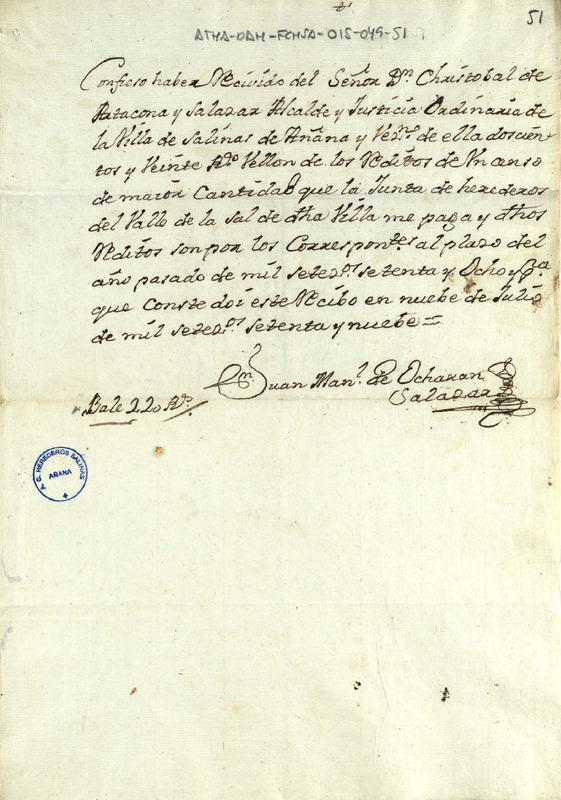 51
ATHA-DAH-FCHSA-015-049-51
Confieso haber Recivido del Señor Dn. Christobal de
Artacona y Salazar Alcalde y Justicia Ordinaria de
la Villa de Salinas de Añana y Vezno. de ella doscien
tos y Veinte Rs. Vellon de los Reditos de Un censo
de maior Cantidad que la Junta de herederos
del Valle de la Sal de dha Villa me paga y dhos
Reditos son por los Correspontes. al plazo del
año pasado de mil setezs. setenta y Ocho y pa.
que conste doi este Recibo en nuebe de Julio
de mil setezs. setenta y nuebe =
Dn. Juan Manl. de Ocharan
Salazar
Bale 220 Rs.
A. G. HEREDEROS SALINAS
AÑANA